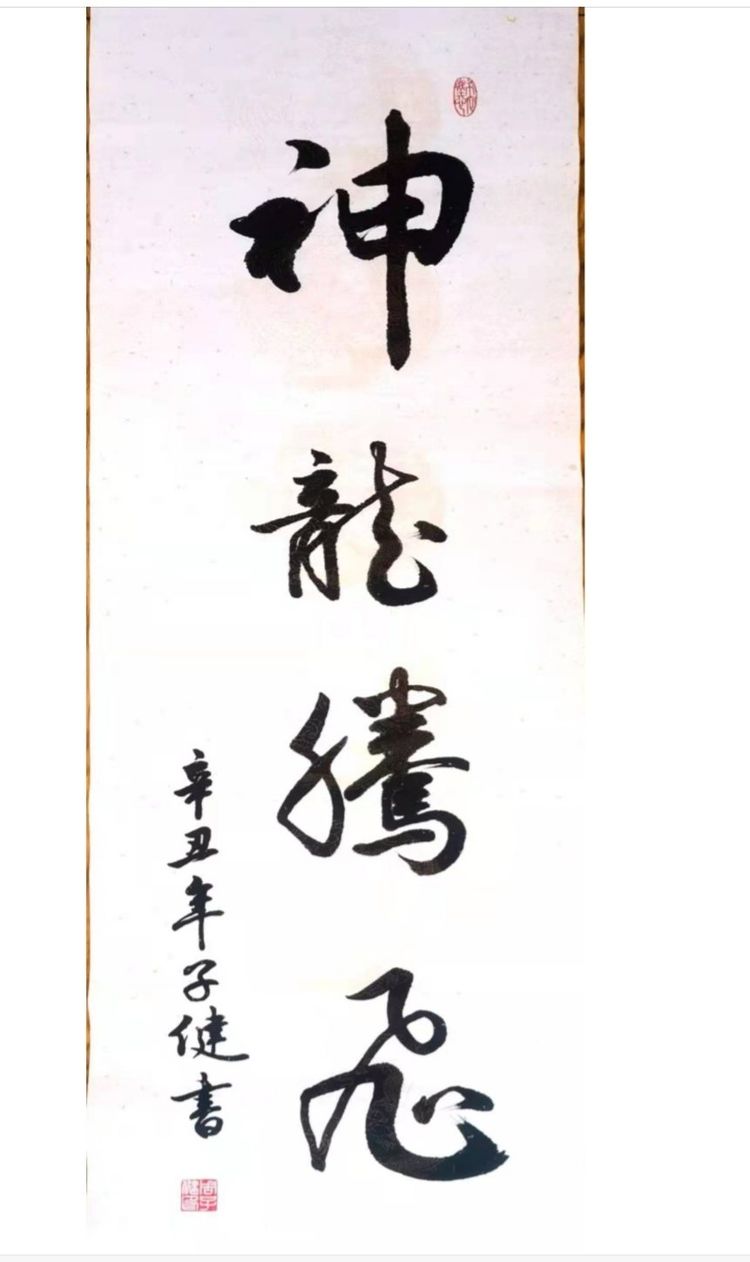 神龍騰飛
辛丑年子健書